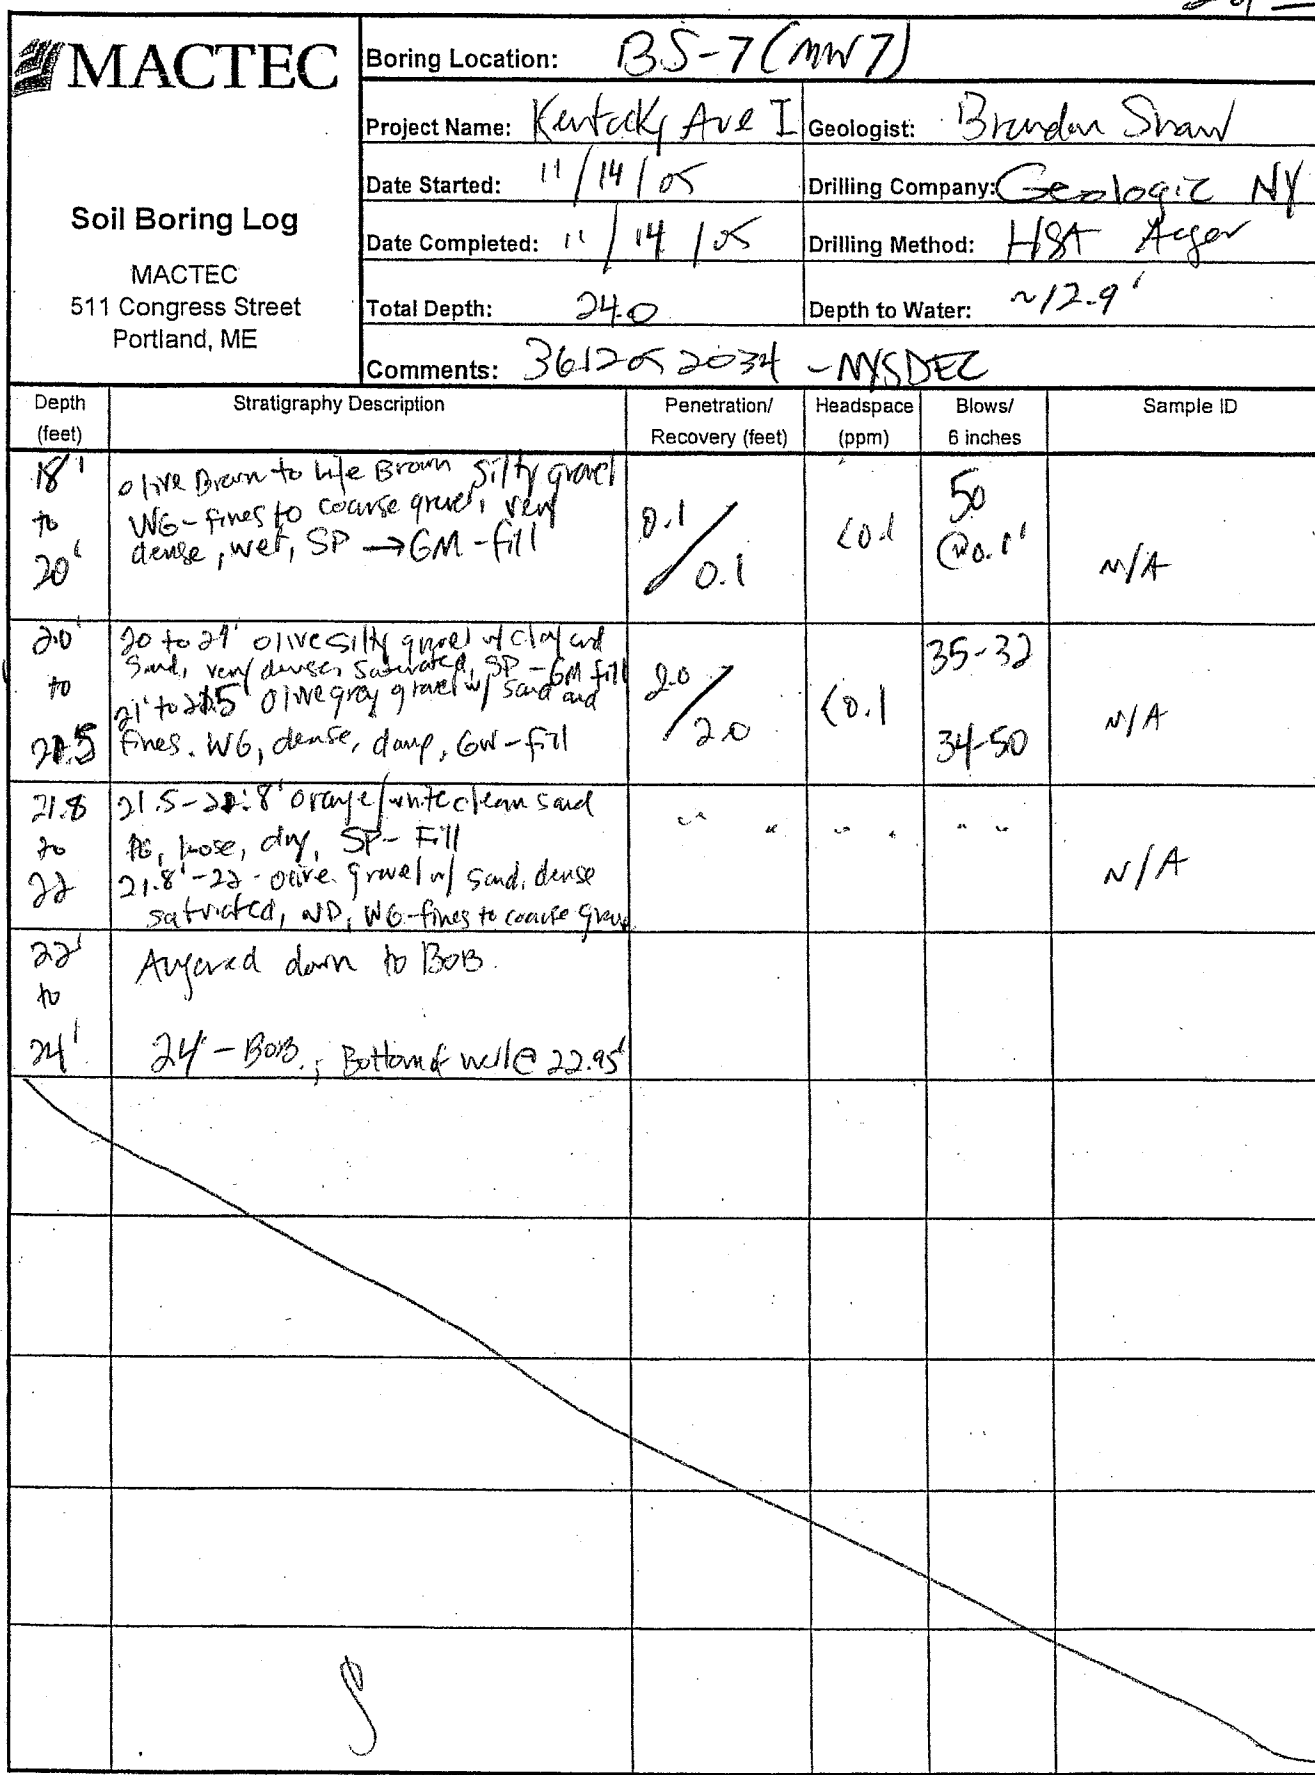 MACTEC
Soil Boring Log
MACTEC
511 Congress Street
Portland, ME
Boring Location: BS-7 (MW7)
Project Name: Kentucky Ave I
Geologist: Brandon Shaw
Date Started: 11/14/05
Drilling Company: Geologic NY
Date Completed: 11/14/05
Drilling Method: HSA Auger
Total Depth: 24.0
Depth to Water: ~12.9'
Comments: 3612052034 - NYSDEC
Depth (feet)
Stratigraphy Description
Penetration/ Recovery (feet)
Headspace (ppm)
Blows/ 6 inches
Sample ID
18' to 20'
olive Brown to Brown silty gravel
WG-fines to coarse gravel, very
dense, wet, SP → GM - fill
0.1/0.1
<0.1
50 @ 0.1'
N/A
20' to 21.5
20 to 21' olive silty gravel w/ clay and
sand, very dense, saturated, SP - GM fill
21' to 21.5 olive gray gravel w/ sand and
fines. WG, dense, damp, GW - fill
2.0/2.0
<0.1
35-32
34-50
N/A
21.8 to 22
21.5-21.8' orange/white clean sand
PG, loose, dry, SP - Fill
21.8'-22 - olive gravel w/ sand, dense
saturated, ND, WG-fines to coarse gravel
" "
" "
" "
N/A
22' to 24'
Augered down to BOB.
24' - BOB.; Bottom of well @ 22.95'